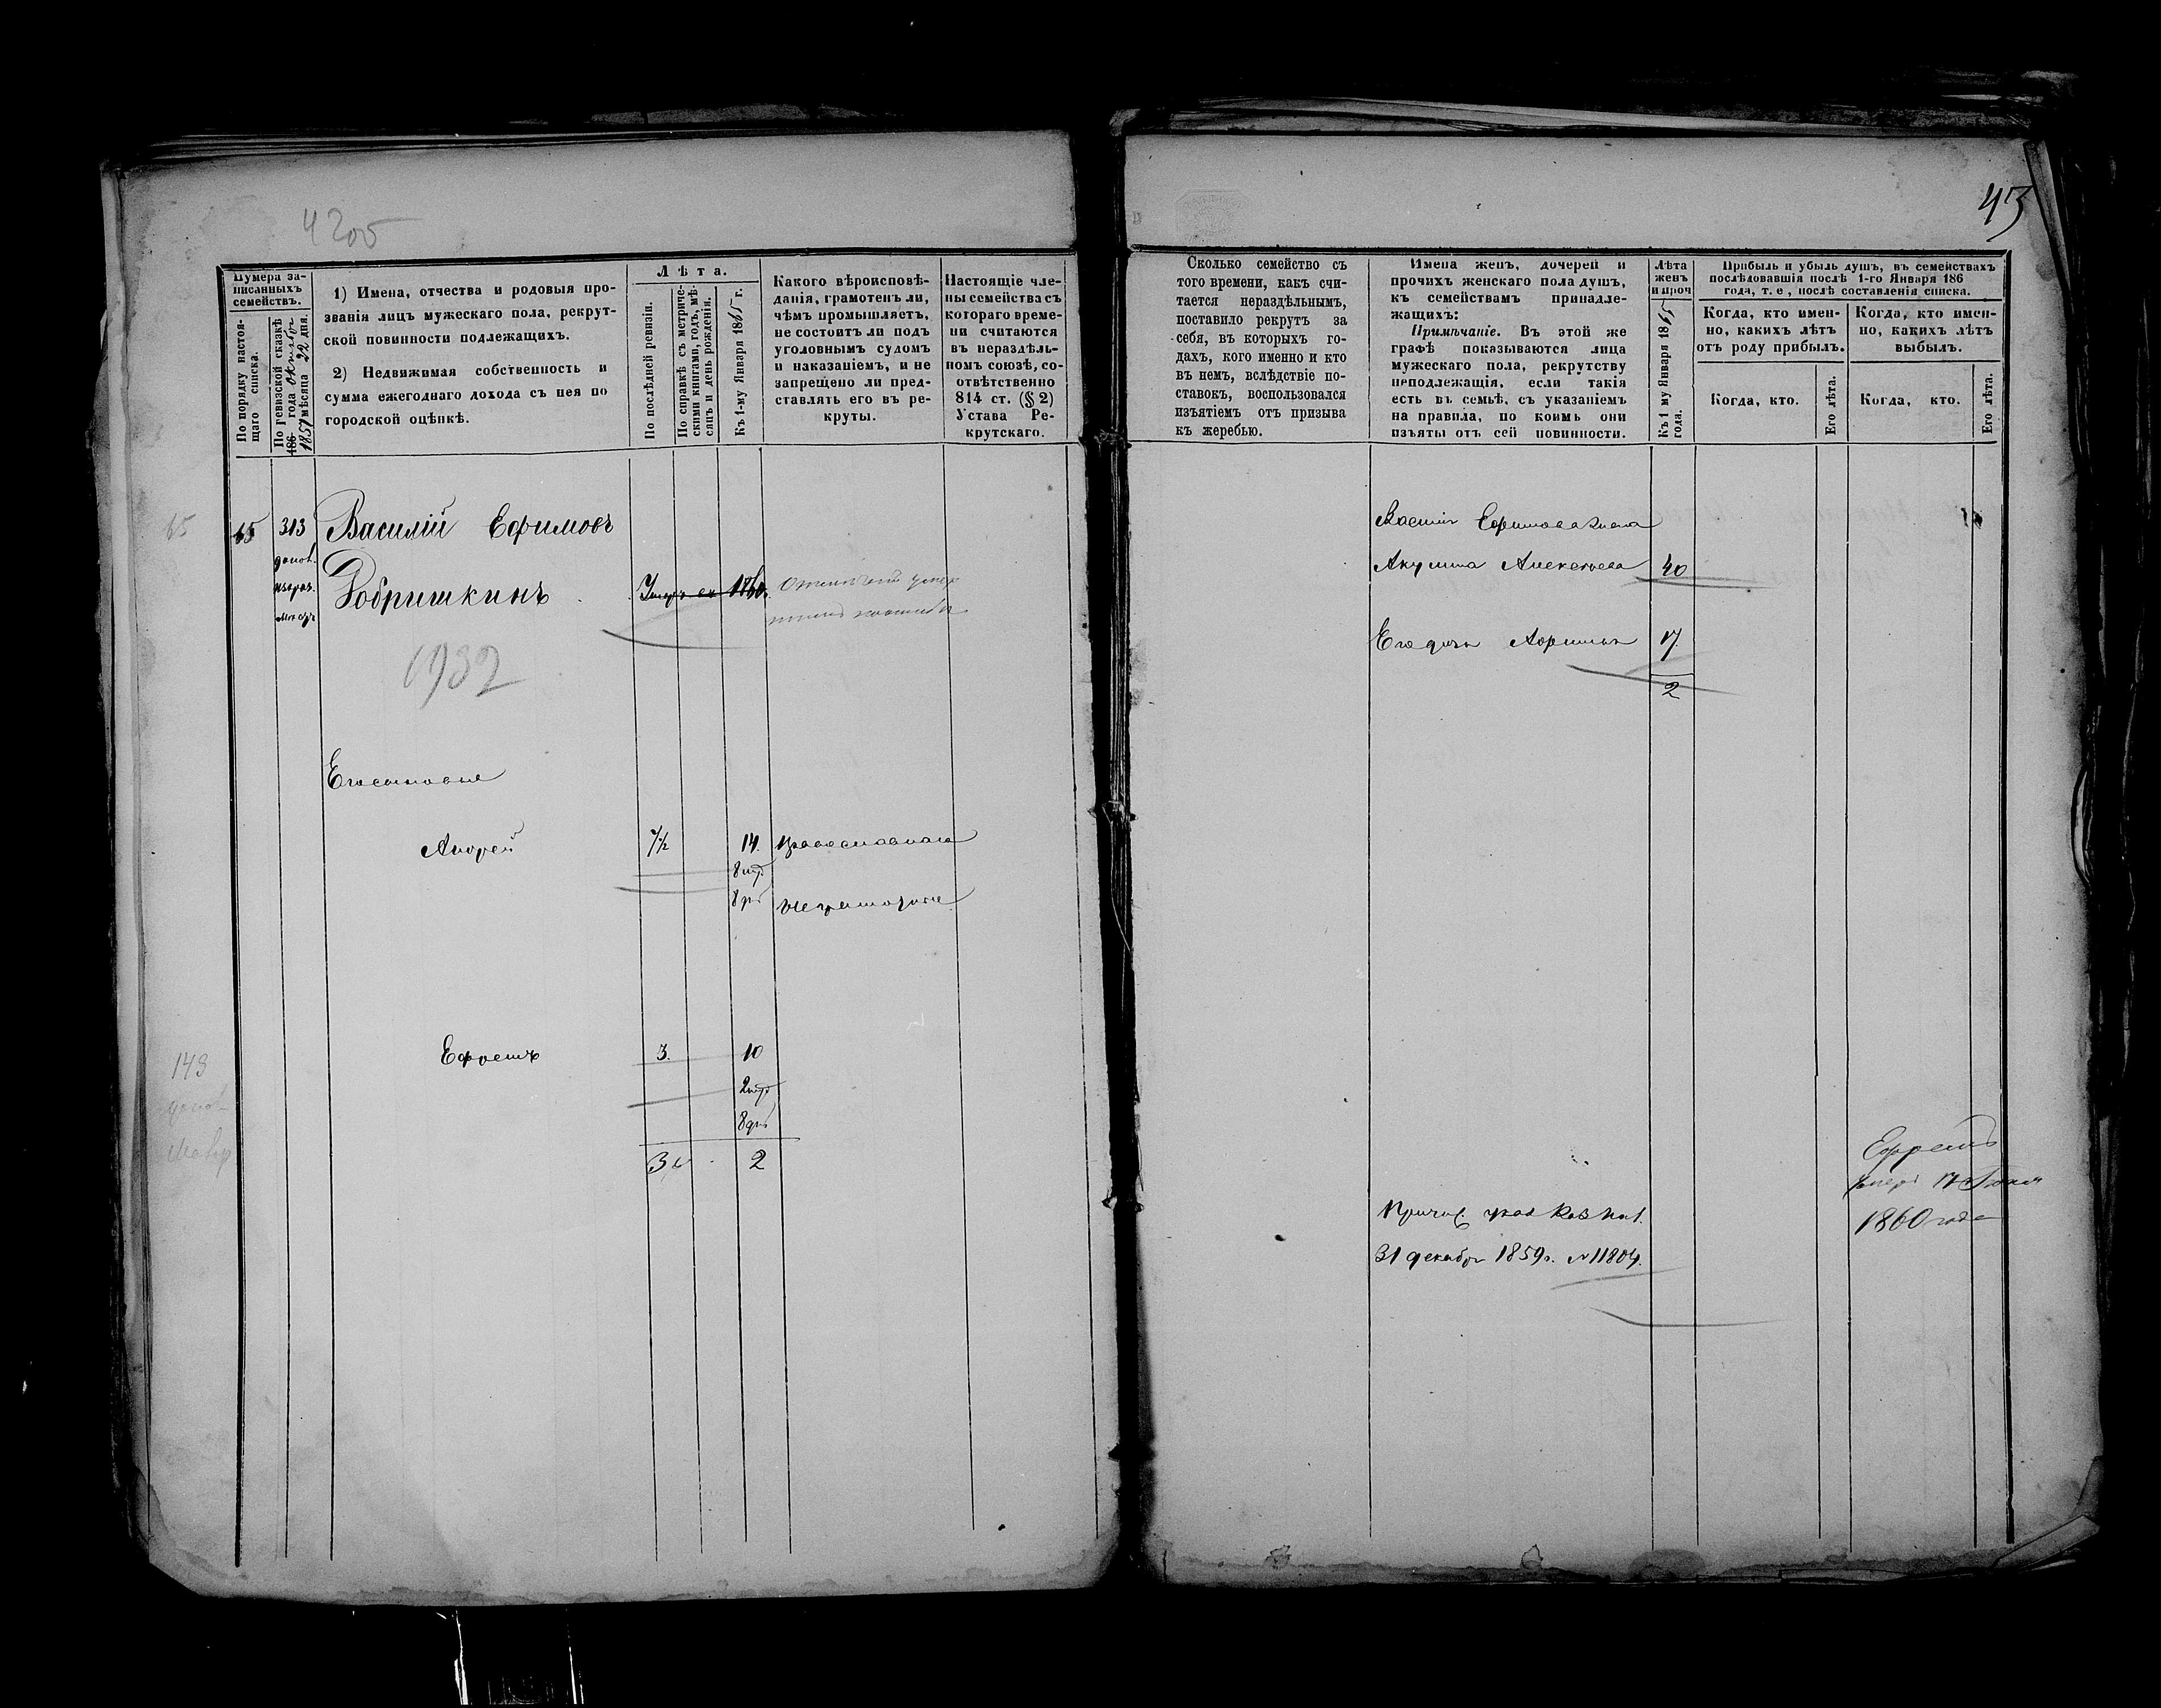 4205
Нумера за-
писанныхъ
семействъ.
По порядку настоя-
щаго списка.
По ревизской сказкѣ
186 года октября
1857 мѣсяца 22 дня.
1) Имена, отчества и родовыя про-
званія лицъ мужескаго пола, рекрут-
ской повинности подлежащихъ.
2) Недвижимая собственность и
сумма ежегоднаго дохода съ нея по
городской оцѣнкѣ.
Лѣта.
По послѣдней ревизіи.
По справкѣ съ метриче-
скими книгами, годъ, мѣ-
сяцъ и день рожденія.
Къ 1-му Января 1865 г.
Какого вѣроисповѣ-
данія, грамотенъ ли,
чѣмъ промышляетъ,
не состоитъ ли подъ
уголовнымъ судомъ
и наказаніемъ, и не
запрещено ли пред-
ставлять его въ ре-
круты.
Настоящіе чле-
ны семейства съ
котораго време-
ни считаются
въ нераздѣль-
номъ союзѣ, со-
отвѣтственно
814 ст. (§ 2)
Устава Ре-
крутскаго.
65 65 313 Василій Ефимовъ
допол.
Добришкинъ Умеръ въ 1860.
1932
Его сыновья
Андрей 7½ 14. православнаго
8 мѣ.
8 дн. неграмотенъ
Ефремъ 3. 10
2 мѣ.
8 дн.
2
143
43
Сколько семейство съ
того времени, какъ счи-
тается нераздѣльнымъ,
поставило рекрутъ за
себя, въ которыхъ го-
дахъ, кого именно и кто
въ немъ, вслѣдствіе по-
ставокъ, воспользовался
изъятіемъ отъ призыва
къ жеребью.
Имена женъ, дочерей и
прочихъ женскаго пола душъ,
къ семействамъ принадле-
жащихъ:
Примѣчаніе. Въ этой же
графѣ показываются лица
мужескаго пола, рекрутству
неподлежащія, если такія
есть въ семьѣ, съ указаніемъ
на правила, по коимъ они
изъяты отъ сей повинности.
Лѣта
женъ
и проч
Къ 1 му Января 1865
года.
Прибыль и убыль душъ, въ семействахъ
послѣдовавшія послѣ 1-го Января 186
года, т. е., послѣ составленія списка.
Когда, кто имен-
но, какихъ лѣтъ
отъ роду прибылъ.
Когда, кто имен-
но, какихъ лѣтъ
выбылъ.
Когда, кто.
Его лѣта.
Когда, кто.
Его лѣта.
Василія Ефимова жена
Акулина Алексѣева 40
Его дочь 17.
2
Ефремъ
умеръ 17
1860 года
Причис. указ. Каз. Пал.
31 декабря 1859 г. № 11804.